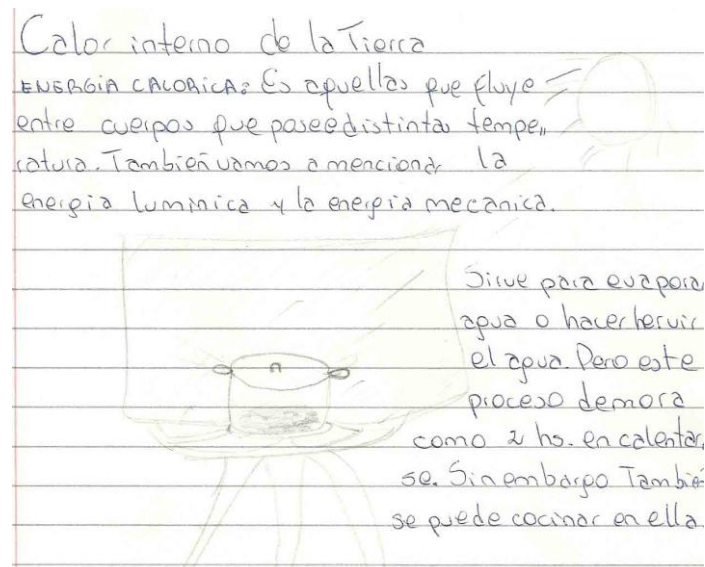 Calor interno de la Tierra
ENERGIA CALORICA: Es aquellas que fluye
entre cuerpos que posee distinta tempe"
ratura. Tambień vamos a mencionar la
energia luminica y la energia mecanica.
Sirve para evaporar
agua o hacer hervir
el agua. Pero este
proceso demora
como 2 hs. en calentar,
se. Sin embargo Tambień
se puede cocinar en ella